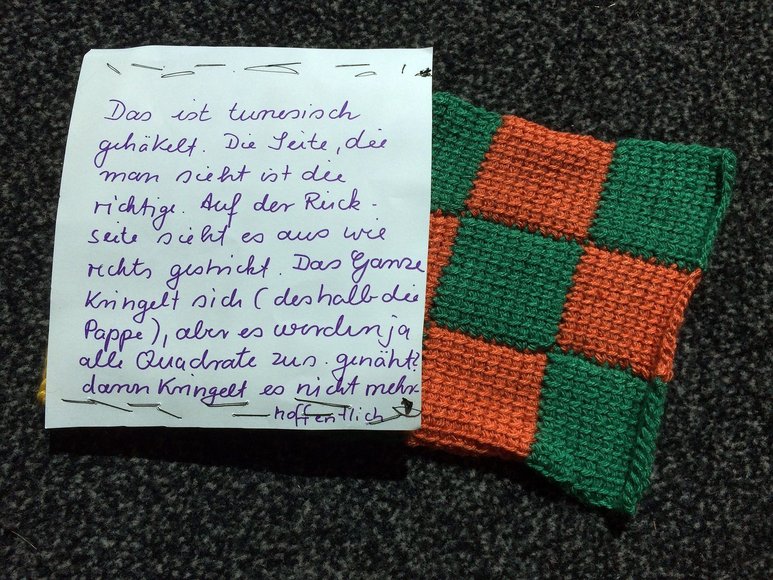 Das ist tunesisch
gehäkelt. Die Seite, die
man sieht ist die
richtige. Auf der Rück-
seite sieht es aus wie
rechts gestrickt. Das Ganze
Kringelt sich (deshalb die
Pappe), aber es werden ja
alle Quadrate zus. genäht?
dann Kringelt es nicht mehr
hoffentlich